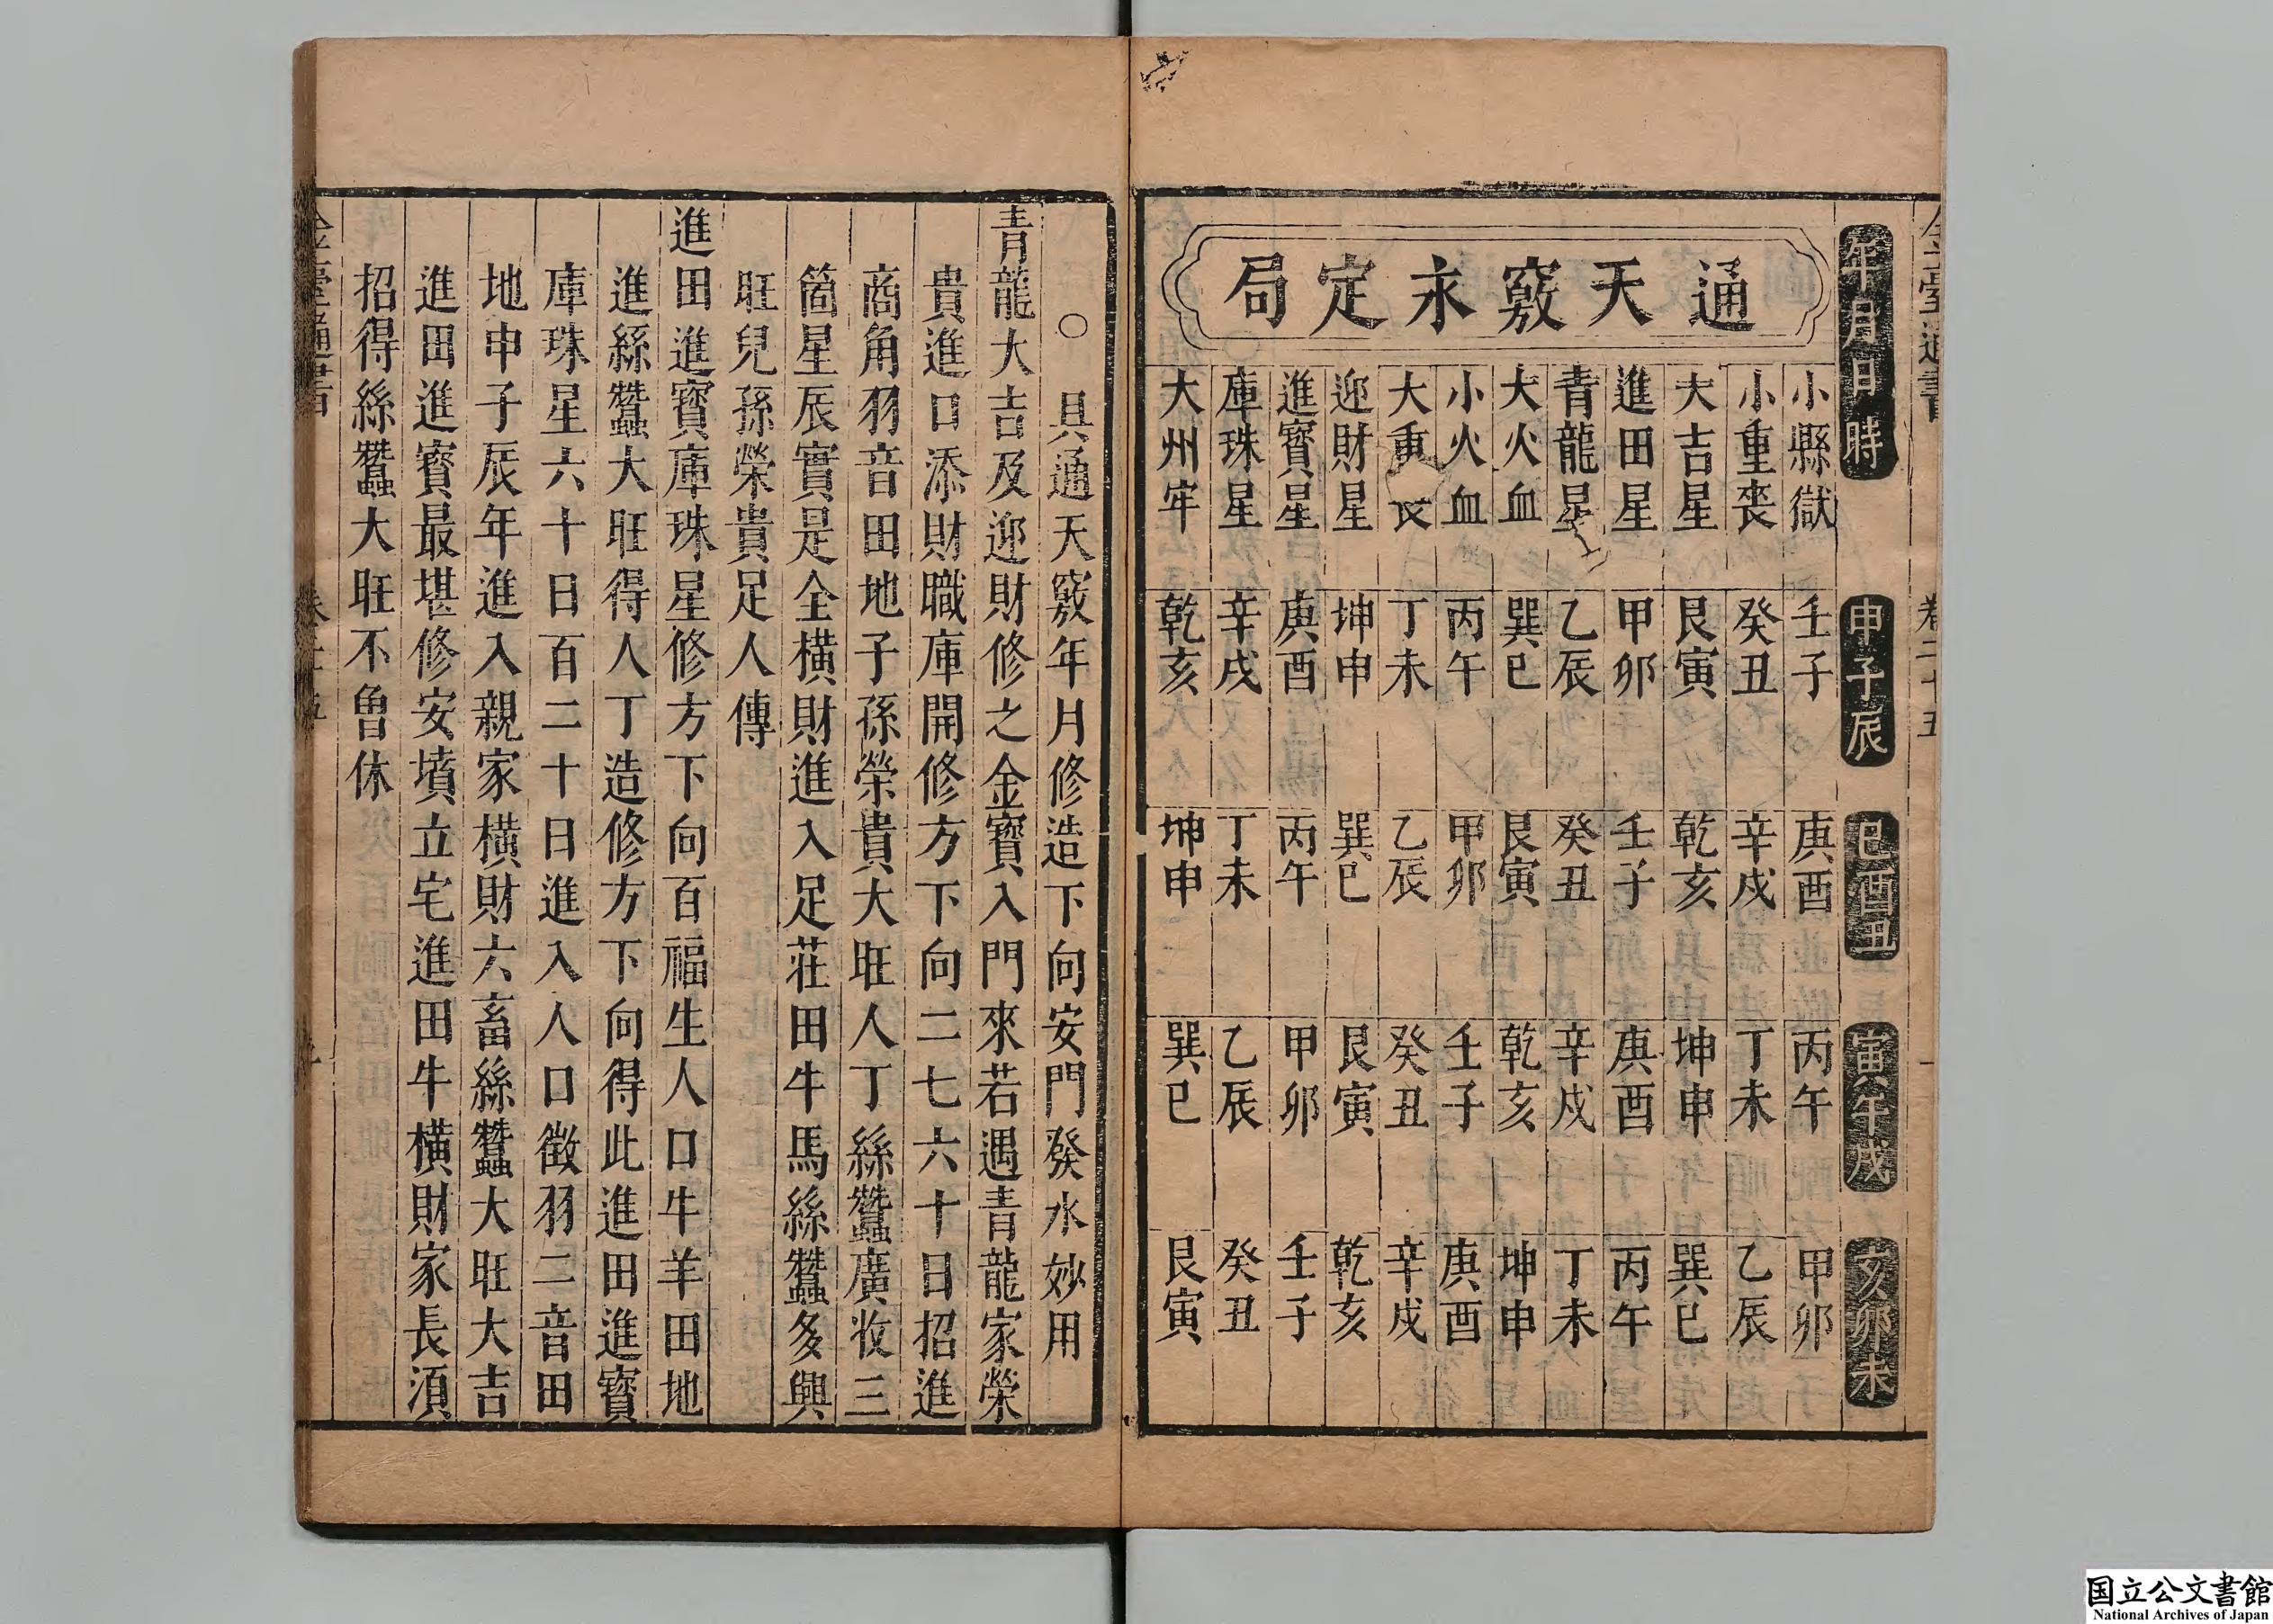 通天竅永定局
年月日時
申子辰
巳酉丑
寅午戌
亥卯未
小縣獄 壬子 庚酉 丙午 甲卯
小重喪 癸丑 辛戌 丁未 乙辰
大吉星 艮寅 乾亥 坤申 巽巳
進田星 甲卯 壬子 庚酉 丙午
青龍星 乙辰 癸丑 辛戌 丁未
大火血 巽巳 艮寅 乾亥 坤申
小火血 丙午 甲卯 壬子 庚酉
大重丧 丁未 乙辰 癸丑 辛戌
迎財星 坤申 巽巳 艮寅 乾亥
進寳星 庚酉 丙午 甲卯 壬子
庫珠星 辛戌 丁未 乙辰 癸丑
大州牢 乾亥 坤申 巽巳 艮寅
○具通天竅年月修造下向安門癹水妙用
青龍大吉及迎財修之金寳入門來若遇青龍家榮
貴進口添財職庫開修方下向二七六十日招進
商角羽音田地子孫榮貴大旺人丁絲蠶廣收三
箇星辰實是全橫財進入足莊田牛馬絲蠶多興
旺兒孫榮貴足人傳
進田進寳庫珠星修方下向百福生人口牛羊田地
進絲蠶大旺得人丁造修方下向得此進田進寳
庫珠星六十日百二十日進入人口徵羽二音田
地申子辰年進入親家橫財六畜絲蠶大旺大吉
進田進寳最堪修安墳立宅進田牛橫財家長湏
招得絲蠶大旺不魯休
国立公文書館
National Archives of Japan